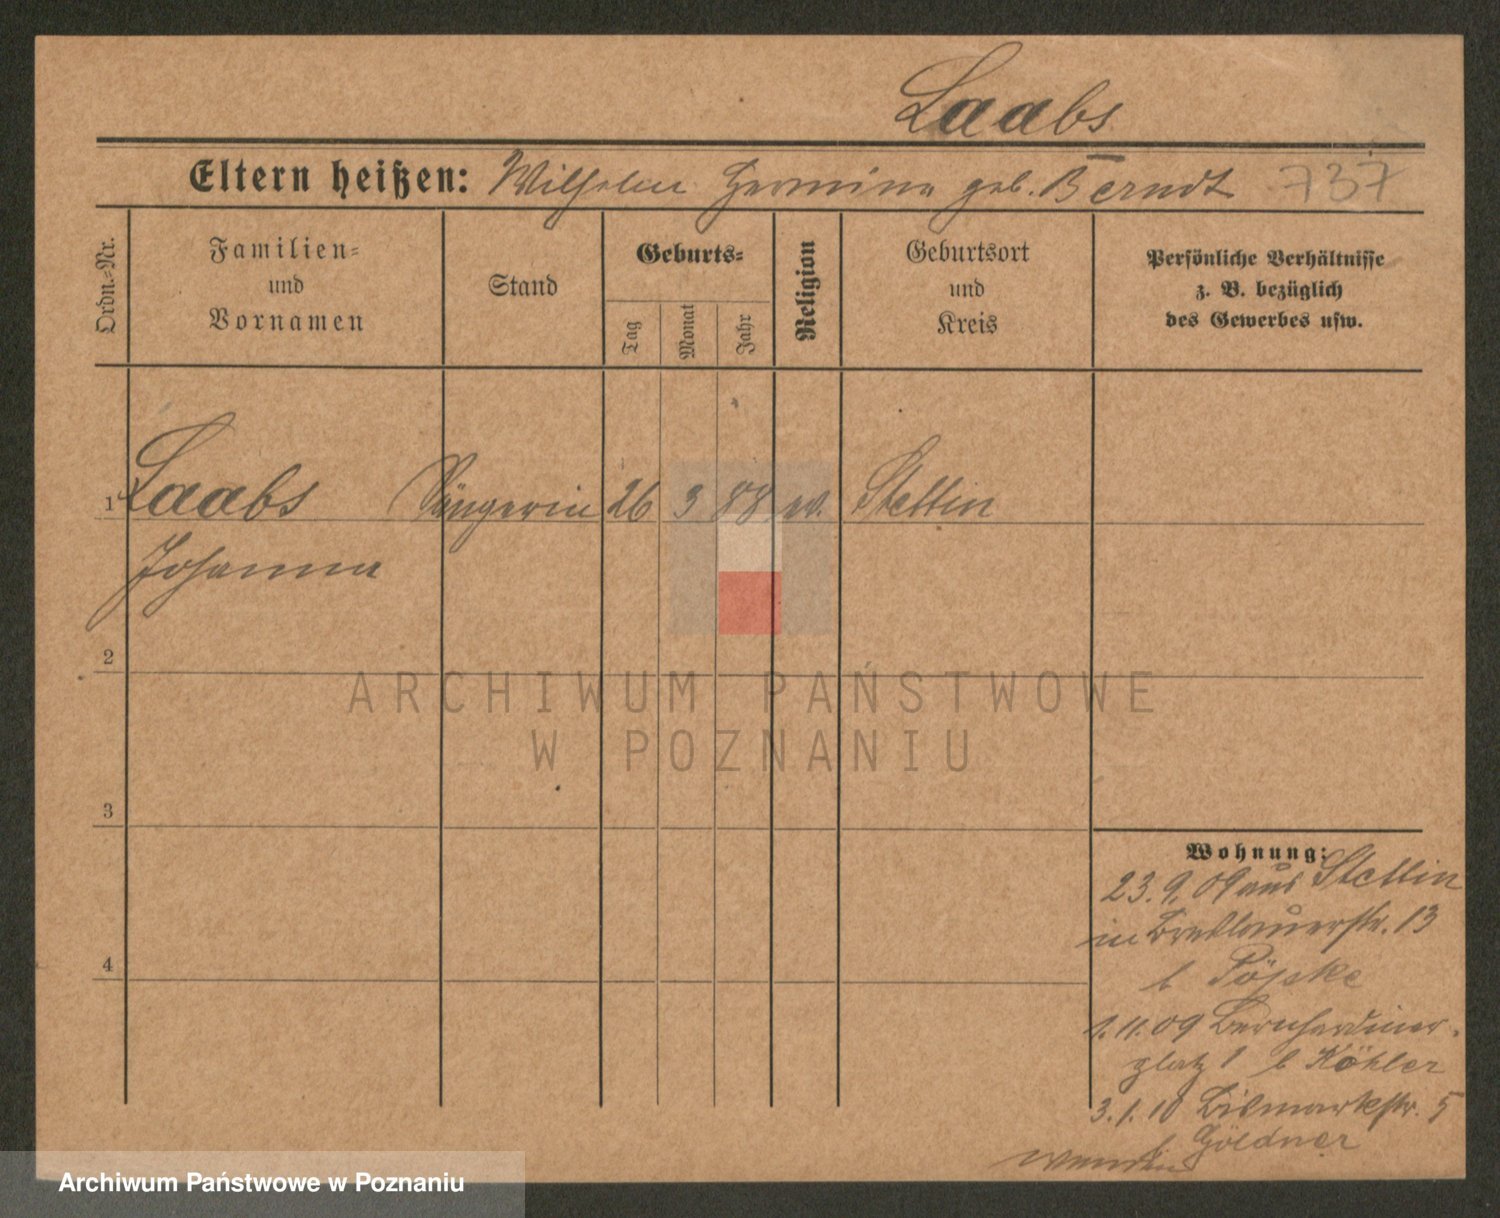 Laabs
Eltern heißen: Wilhelm Hermine geb. Berndt 737
Ordn.-Nr.
Familien-
und
Vornamen
Stand
Geburts-
Tag
Monat
Jahr
Religion
Geburtsort
und
Kreis
Persönliche Verhältnisse
z. B. bezüglich
des Gewerbes usw.
1 Laabs Sängerin 26 3 88 ev. Stettin
Johanna
2
ARCHIWUM PAŃSTWOWE
W POZNANIU
3
Wohnung:
23.9.09 aus Stettin
in Breslauerstr. 13
b Pöpke
4
1.11.09 Bernhardiner-
platz 1 b Köhler
3.1.10 Bismarkstr. 5
b Göldner
wenden
Archiwum Państwowe w Poznaniu